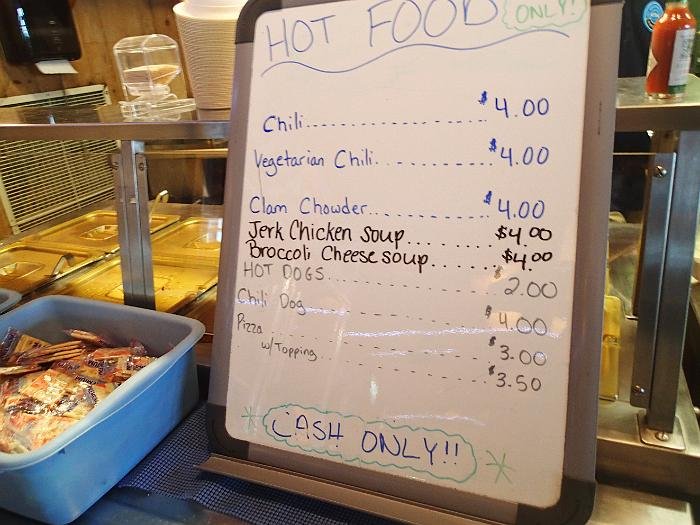 HOT FOOD ONLY!
Chili $4.00
Vegetarian Chili $4.00
Clam Chowder $4.00
Jerk Chicken Soup $4.00
Broccoli Cheese soup $4.00
HOT DOGS $2.00
Chili Dog $4.00
Pizza $3.00
w/ Topping $3.50
CASH ONLY!!